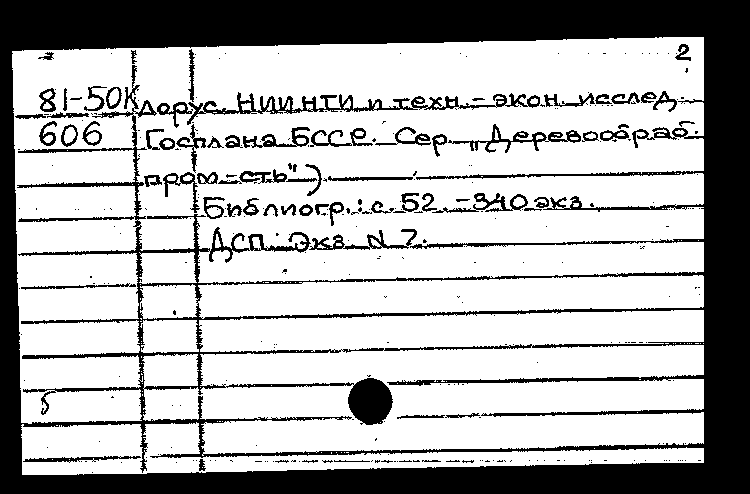 2
81-50К лорус. НИИНТИ и техн.-экон. исслед.
606 Госплана БССР. Сер. "Деревообраб.
пром-сть")
Библиогр.: с. 52. - 340 экз.
ДСП. Экз. N 7.
б